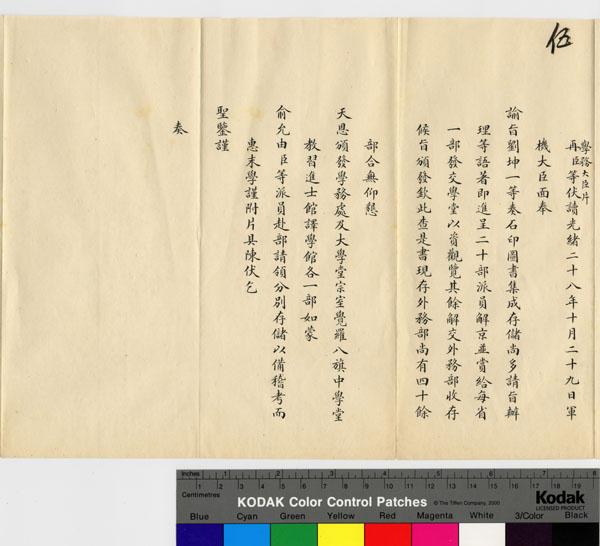 伍
學務大臣片
再臣等伏讀光緒二十八年十月二十九日軍
機大臣面奉
諭旨劉坤一等奏石印圖書集成存儲尚多請旨辦
理等語著即進呈二十部派員解京並賞給每省
一部發交學堂以資觀覽其餘解交外務部收存
候旨頒發欽此查是書現存外務部尚有四十餘
部合無仰懇
天恩頒發學務處及大學堂宗室覺羅八旗中學堂
教習進士館譯學館各一部如蒙
俞允由臣等派員赴部請領分別存儲以備稽考而
惠末學謹附片具陳伏乞
聖鑒謹
奏
Inches 1 2 3 4 5 6 7 8
Centimetres 1 2 3 4 5 6 7 8 9 10 11 12 13 14 15 16 17 18 19
KODAK Color Control Patches
© The Tiffen Company, 2000
Kodak
LICENSED PRODUCT
Blue Cyan Green Yellow Red Magenta White 3/Color Black